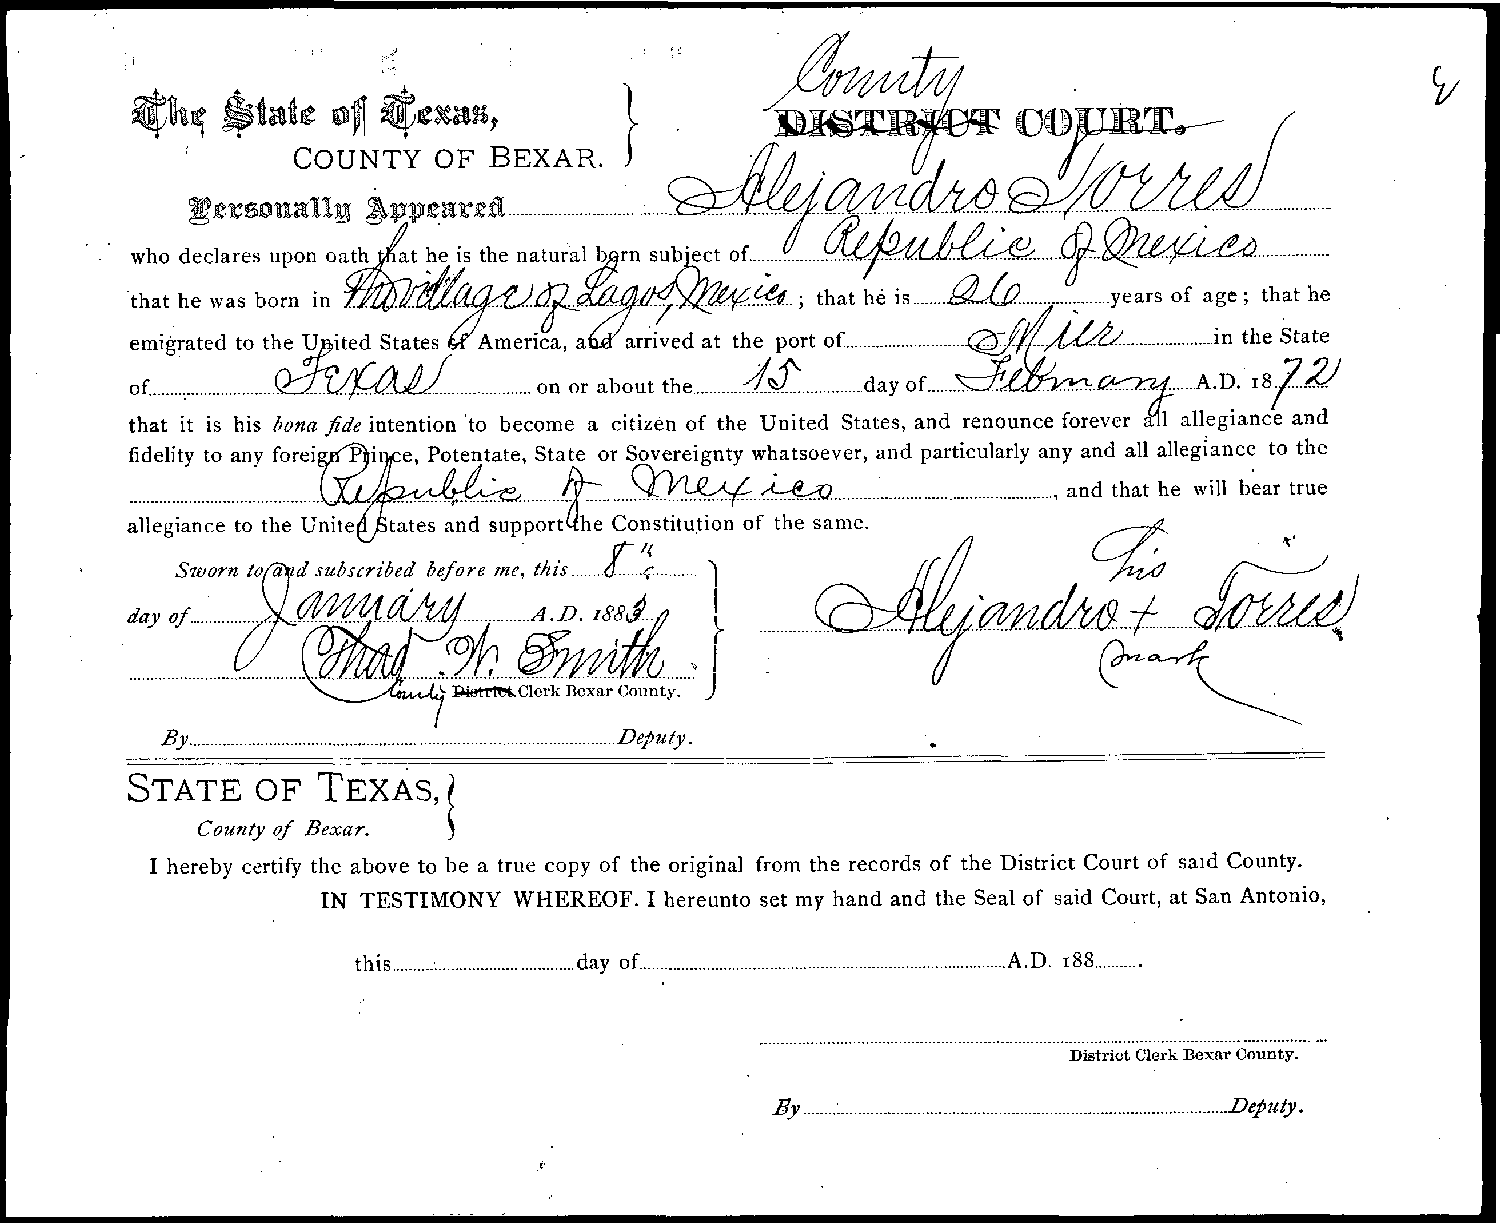 The State of Texas,
COUNTY OF BEXAR.
County
DISTRICT COURT.
Personally Appeared Alejandro Torres
who declares upon oath that he is the natural born subject of Republic of Mexico
that he was born in The village of Lagos, Mexico ; that he is 26 years of age ; that he
emigrated to the United States of America, and arrived at the port of Mier in the State
of Texas on or about the 15 day of February A.D. 1872
that it is his bona fide intention to become a citizen of the United States, and renounce forever all allegiance and
fidelity to any foreign Prince, Potentate, State or Sovereignty whatsoever, and particularly any and all allegiance to the
Republic of Mexico , and that he will bear true
allegiance to the United States and support the Constitution of the same.
Sworn to and subscribed before me, this 8"
day of January A.D. 1883
Thad W. Smith
County District Clerk Bexar County.
By Deputy.
his
Alejandro + Torres
mark
STATE OF TEXAS,
County of Bexar.
I hereby certify the above to be a true copy of the original from the records of the District Court of said County.
IN TESTIMONY WHEREOF. I hereunto set my hand and the Seal of said Court, at San Antonio,
this day of A.D. 188 .
District Clerk Bexar County.
By Deputy.